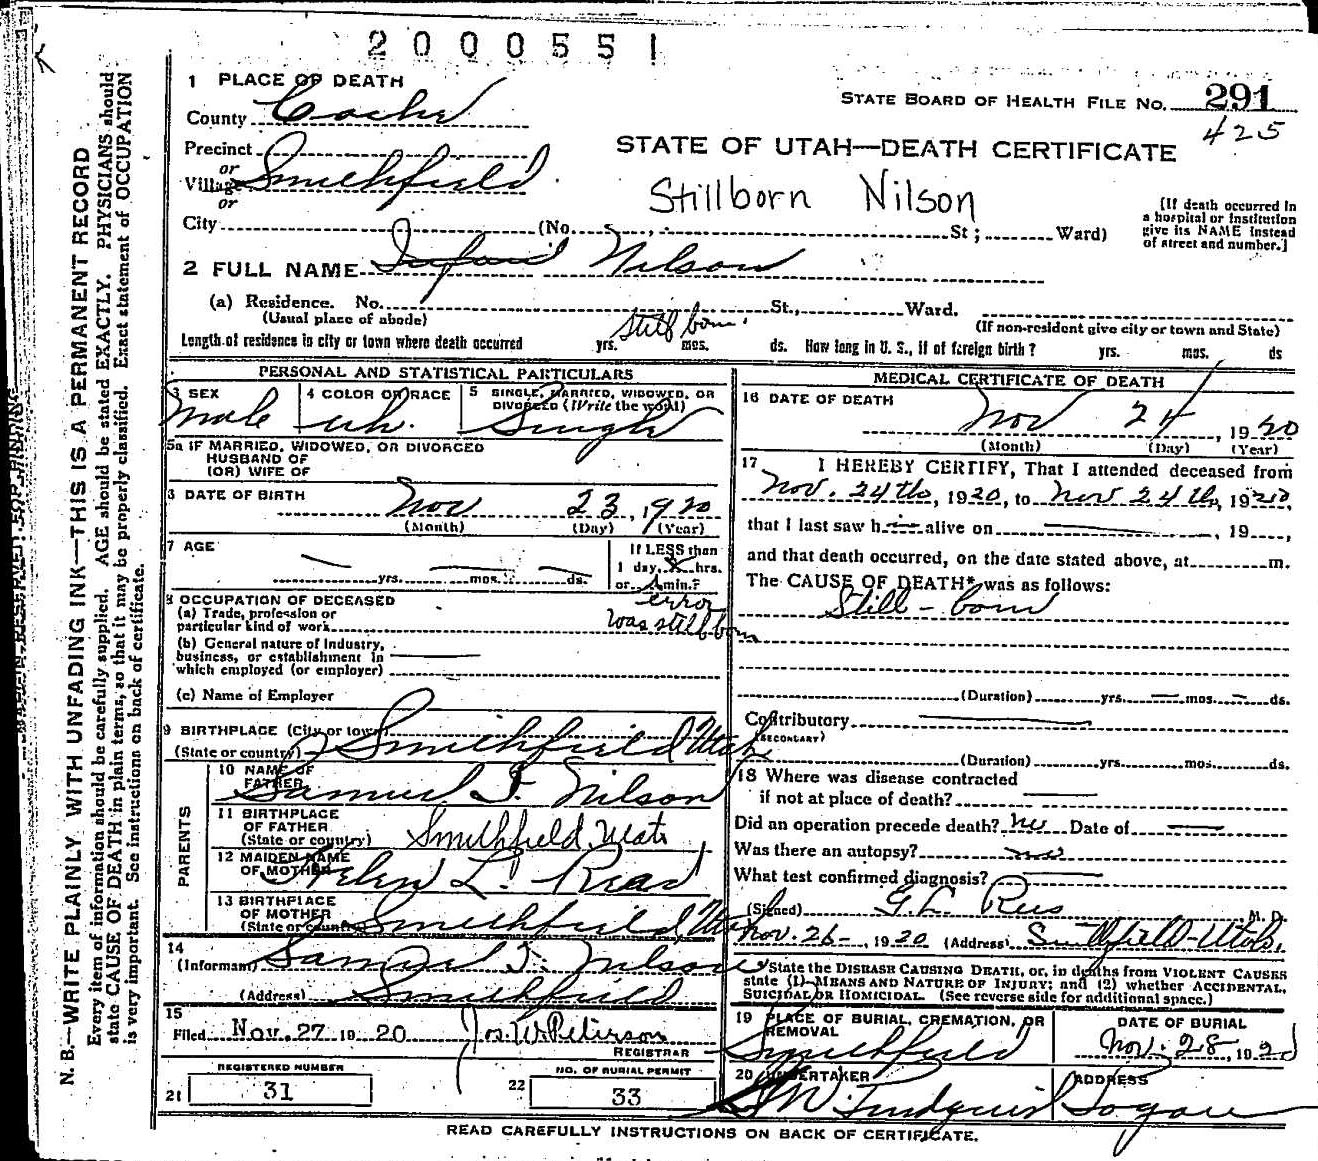 2000551
1 PLACE OF DEATH
County Cache
STATE BOARD OF HEALTH FILE No. 291
425
Precinct
or
Village Smithfield
or
STATE OF UTAH—DEATH CERTIFICATE
Stillborn Nilson
City (No. St; Ward)
[If death occurred in
a hospital or institution
give its NAME instead
of street and number.]
2 FULL NAME Infant Nilson
(a) Residence. No. St., Ward.
(Usual place of abode)
(If non-resident give city or town and State)
Still born.
Length of residence in city or town where death occurred yrs. mos. ds. How long in U. S., if of foreign birth? yrs. mos. ds
PERSONAL AND STATISTICAL PARTICULARS
3 SEX
male
4 COLOR OR RACE
wh.
5 SINGLE, MARRIED, WIDOWED, OR
DIVORCED (Write the word)
Single
5a IF MARRIED, WIDOWED, OR DIVORCED
HUSBAND OF
(OR) WIFE OF
DATE OF BIRTH
Nov 23, 1920
(Month) (Day) (Year)
7 AGE
yrs. mos. ds.
If LESS than
1 day, hrs.
or min.?
error
was still born
8 OCCUPATION OF DECEASED
(a) Trade, profession or
particular kind of work
(b) General nature of Industry,
business, or establishment in
which employed (or employer)
(c) Name of Employer
9 BIRTHPLACE (City or town)
(State or country) Smithfield Utah
PARENTS
10 NAME OF
FATHER Samuel F. Nilson
11 BIRTHPLACE
OF FATHER
(State or country) Smithfield, Utah
12 MAIDEN NAME
OF MOTHER Helen L. Read
13 BIRTHPLACE
OF MOTHER
(State or country) Smithfield, Utah
14
(Informant) Samuel F. Nilson
(Address) Smithfield
15
Filed Nov. 27 1920 Jos. W. Peterson
REGISTRAR
21 REGISTERED NUMBER
31
22 NO. OF BURIAL PERMIT
33
MEDICAL CERTIFICATE OF DEATH
16 DATE OF DEATH
Nov 24, 1920
(Month) (Day) (Year)
17 I HEREBY CERTIFY, That I attended deceased from
Nov. 24th, 1920, to Nov 24th, 1920,
that I last saw h alive on , 19 ,
and that death occurred, on the date stated above, at m.
The CAUSE OF DEATH* was as follows:
Still-born
(Duration) yrs. mos. ds.
Contributory
(SECONDARY)
(Duration) yrs. mos. ds.
18 Where was disease contracted
if not at place of death?
Did an operation precede death? no Date of
Was there an autopsy? no
What test confirmed diagnosis?
(Signed) G. L. Rees M. D.
Nov. 26-, 1920 (Address) Smithfield-Utah.
*State the DISEASE CAUSING DEATH, or, in deaths from VIOLENT CAUSES
state (1) MEANS AND NATURE OF INJURY; and (2) whether ACCIDENTAL,
SUICIDAL OR HOMICIDAL. (See reverse side for additional space.)
19 PLACE OF BURIAL, CREMATION, OR
REMOVAL
Smithfield
DATE OF BURIAL
Nov. 28, 192
20 UNDERTAKER
Lundquist
ADDRESS
Logan
READ CAREFULLY INSTRUCTIONS ON BACK OF CERTIFICATE.
N. B.—WRITE PLAINLY WITH UNFADING INK—THIS IS A PERMANENT RECORD
Every item of information should be carefully supplied. AGE should be stated EXACTLY. PHYSICIANS should
state CAUSE OF DEATH in plain terms, so that it may be properly classified. Exact statement of OCCUPATION
is very important. See instructions on back of certificate.